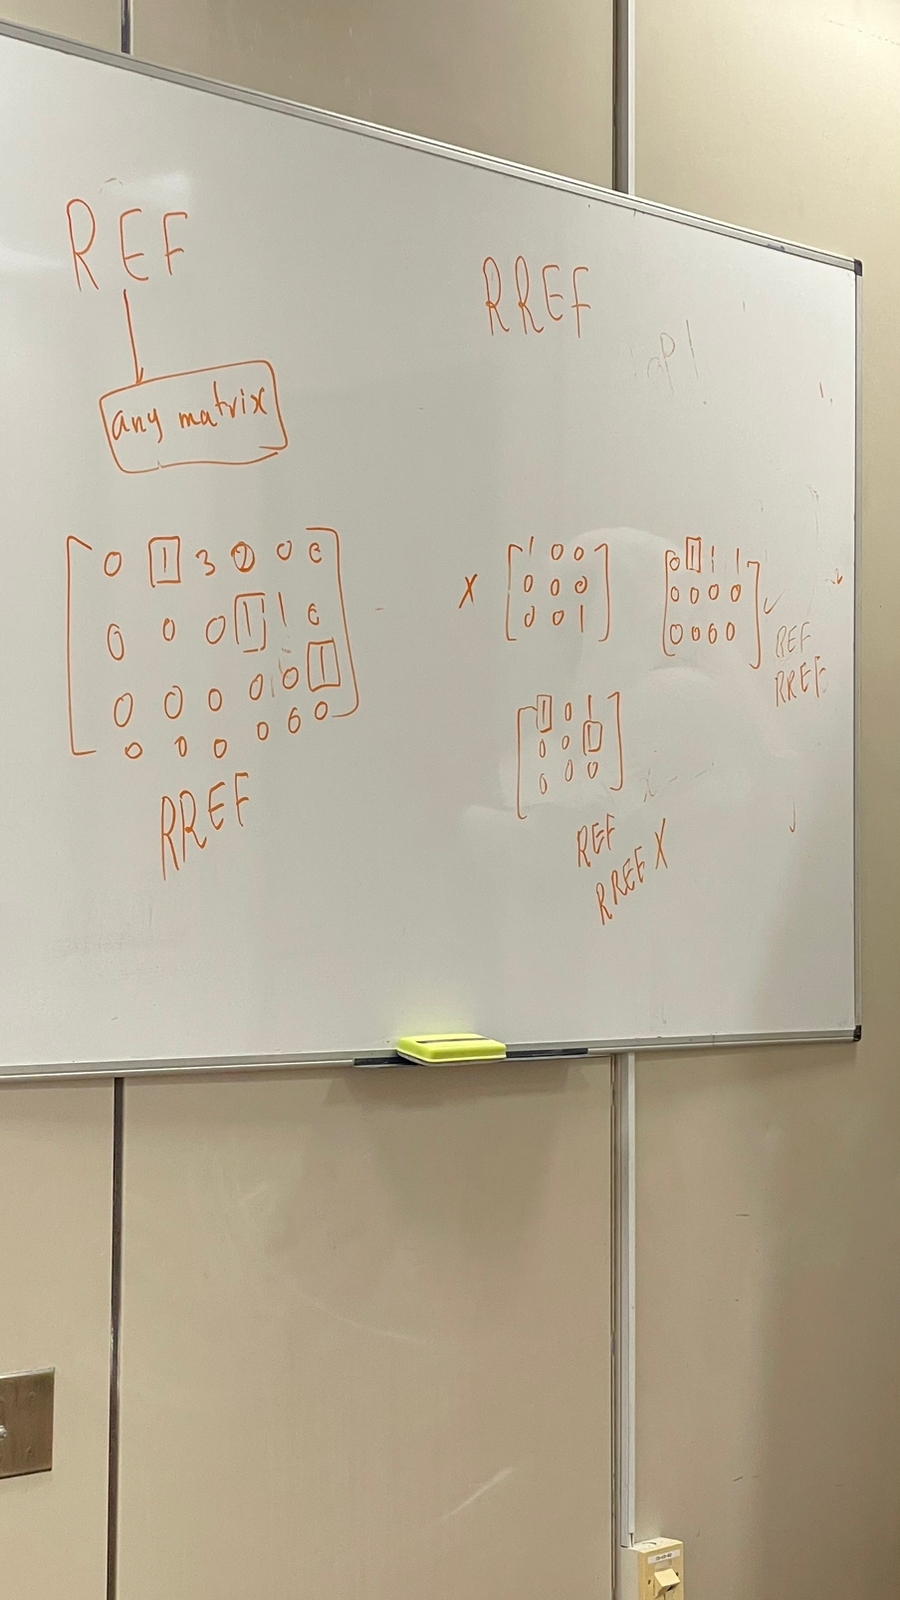 REF
any matrix
0 1 3 0 0 0
0 0 0 1 1 0
0 0 0 0 0 1
0 0 0 0 0 0
RREF
RREF
X
1 0 0
0 0 0
0 0 1
0 1 1 1
0 0 0 0
0 0 0 0
✓
REF
RREF
1 0 1
0 0 1
0 0 0
REF
RREF X